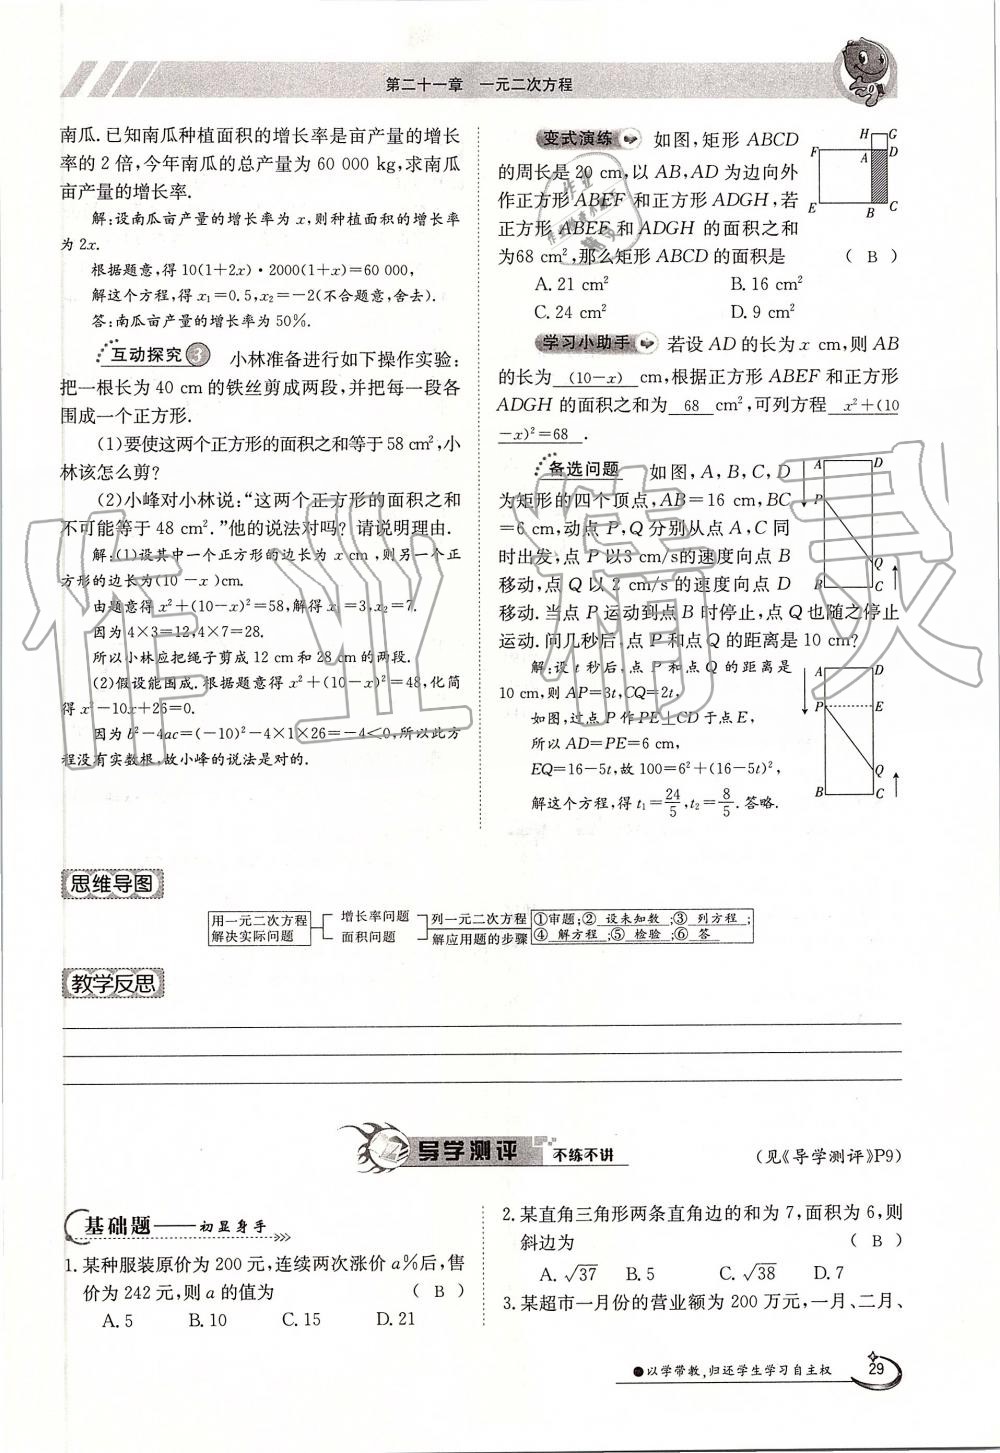 第二十一章　一元二次方程
南瓜.已知南瓜种植面积的增长率是亩产量的增长
率的 2 倍,今年南瓜的总产量为 60 000 kg,求南瓜
亩产量的增长率.
解:设南瓜亩产量的增长率为 x,则种植面积的增长率
为 2x.
根据题意,得 10(1+2x)·2000(1+x)=60 000,
解这个方程,得 x₁=0.5,x₂=-2(不合题意,舍去).
答:南瓜亩产量的增长率为 50%.
互动探究 3　小林准备进行如下操作实验:
把一根长为 40 cm 的铁丝剪成两段,并把每一段各
围成一个正方形.
(1)要使这两个正方形的面积之和等于 58 cm²,小
林该怎么剪?
(2)小峰对小林说:“这两个正方形的面积之和
不可能等于 48 cm².”他的说法对吗? 请说明理由.
解:(1)设其中一个正方形的边长为 x cm,则另一个正
方形的边长为(10-x)cm.
由题意得 x²+(10-x)²=58,解得 x₁=3,x₂=7.
因为 4×3=12,4×7=28.
所以小林应把绳子剪成 12 cm 和 28 cm 的两段.
(2)假设能围成.根据题意得 x²+(10-x)²=48,化简
得 x²-10x+26=0.
因为 b²-4ac=(-10)²-4×1×26=-4<0,所以此方
程没有实数根,故小峰的说法是对的.
变式演练　如图,矩形 ABCD
的周长是 20 cm,以 AB,AD 为边向外
作正方形 ABEF 和正方形 ADGH,若
正方形 ABEF 和 ADGH 的面积之和
为68 cm²,那么矩形 ABCD 的面积是　( B )
A. 21 cm²　B. 16 cm²
C. 24 cm²　D. 9 cm²
H G
F A D
E B C
学习小助手　若设 AD 的长为 x cm,则 AB
的长为 (10-x) cm,根据正方形 ABEF 和正方形
ADGH 的面积之和为 68 cm²,可列方程 x²+(10
-x)²=68 .
备选问题　如图,A,B,C,D
为矩形的四个顶点,AB=16 cm,BC
=6 cm,动点 P,Q 分别从点 A,C 同
时出发,点 P 以3 cm/s的速度向点 B
移动,点 Q 以 2 cm/s 的速度向点 D
移动.当点 P 运动到点 B 时停止,点 Q 也随之停止
运动.问几秒后,点 P 和点 Q 的距离是 10 cm?
A D
P
Q
B C
解:设 t 秒后,点 P 和点 Q 的距离是
10 cm,则 AP=3t,CQ=2t,
如图,过点 P 作 PE⊥CD 于点 E,
所以 AD=PE=6 cm,
EQ=16-5t,故 100=6²+(16-5t)²,
解这个方程,得 t₁=24/5,t₂=8/5.答略.
A D
P E
Q
B C
思维导图
用一元二次方程
解决实际问题
增长率问题
面积问题
列一元二次方程
解应用题的步骤
①审题;② 设未知数 ;③ 列方程 ;
④ 解方程 ;⑤ 检验 ;⑥ 答
教学反思
导学测评　不练不讲
(见《导学测评》P9)
基础题——初显身手
1. 某种服装原价为 200 元,连续两次涨价 a%后,售
价为 242 元,则 a 的值为　( B )
A. 5　B. 10　C. 15　D. 21
2. 某直角三角形两条直角边的和为 7,面积为 6,则
斜边为　( B )
A. √37　B. 5　C. √38　D. 7
3. 某超市一月份的营业额为 200 万元,一月、二月、
●以学带教,归还学生学习自主权
29
作业精灵